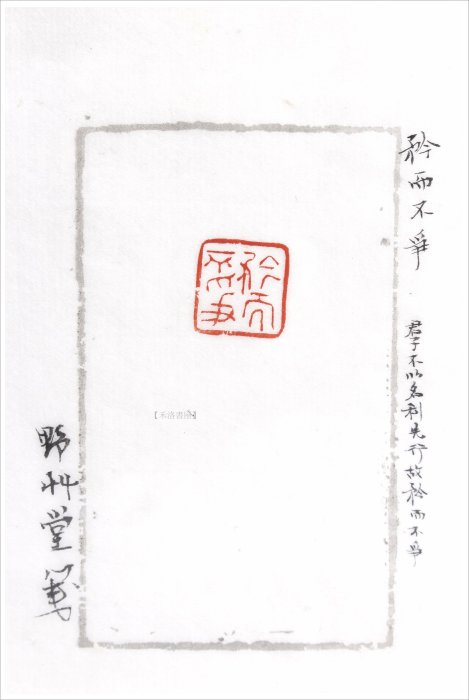 矜而不爭
君子不以名利先行故矜而不爭
矜而不爭
【禾洛書坊】
野艸堂箋